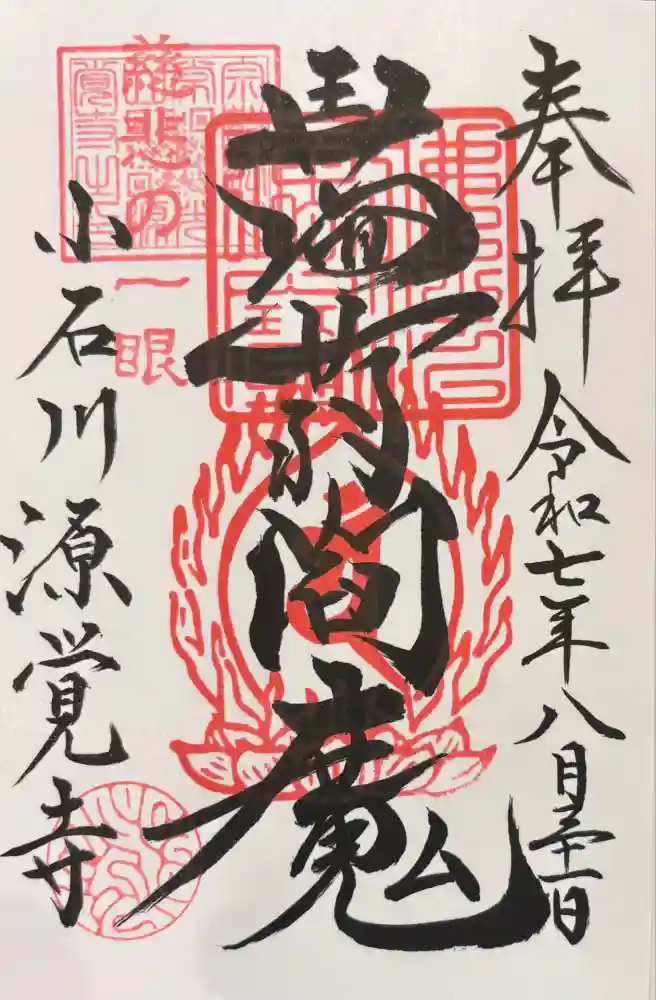 奉拝 令和七年八月三十一日
蒟蒻閻魔
慈悲の
一眼
小石川 源覚寺